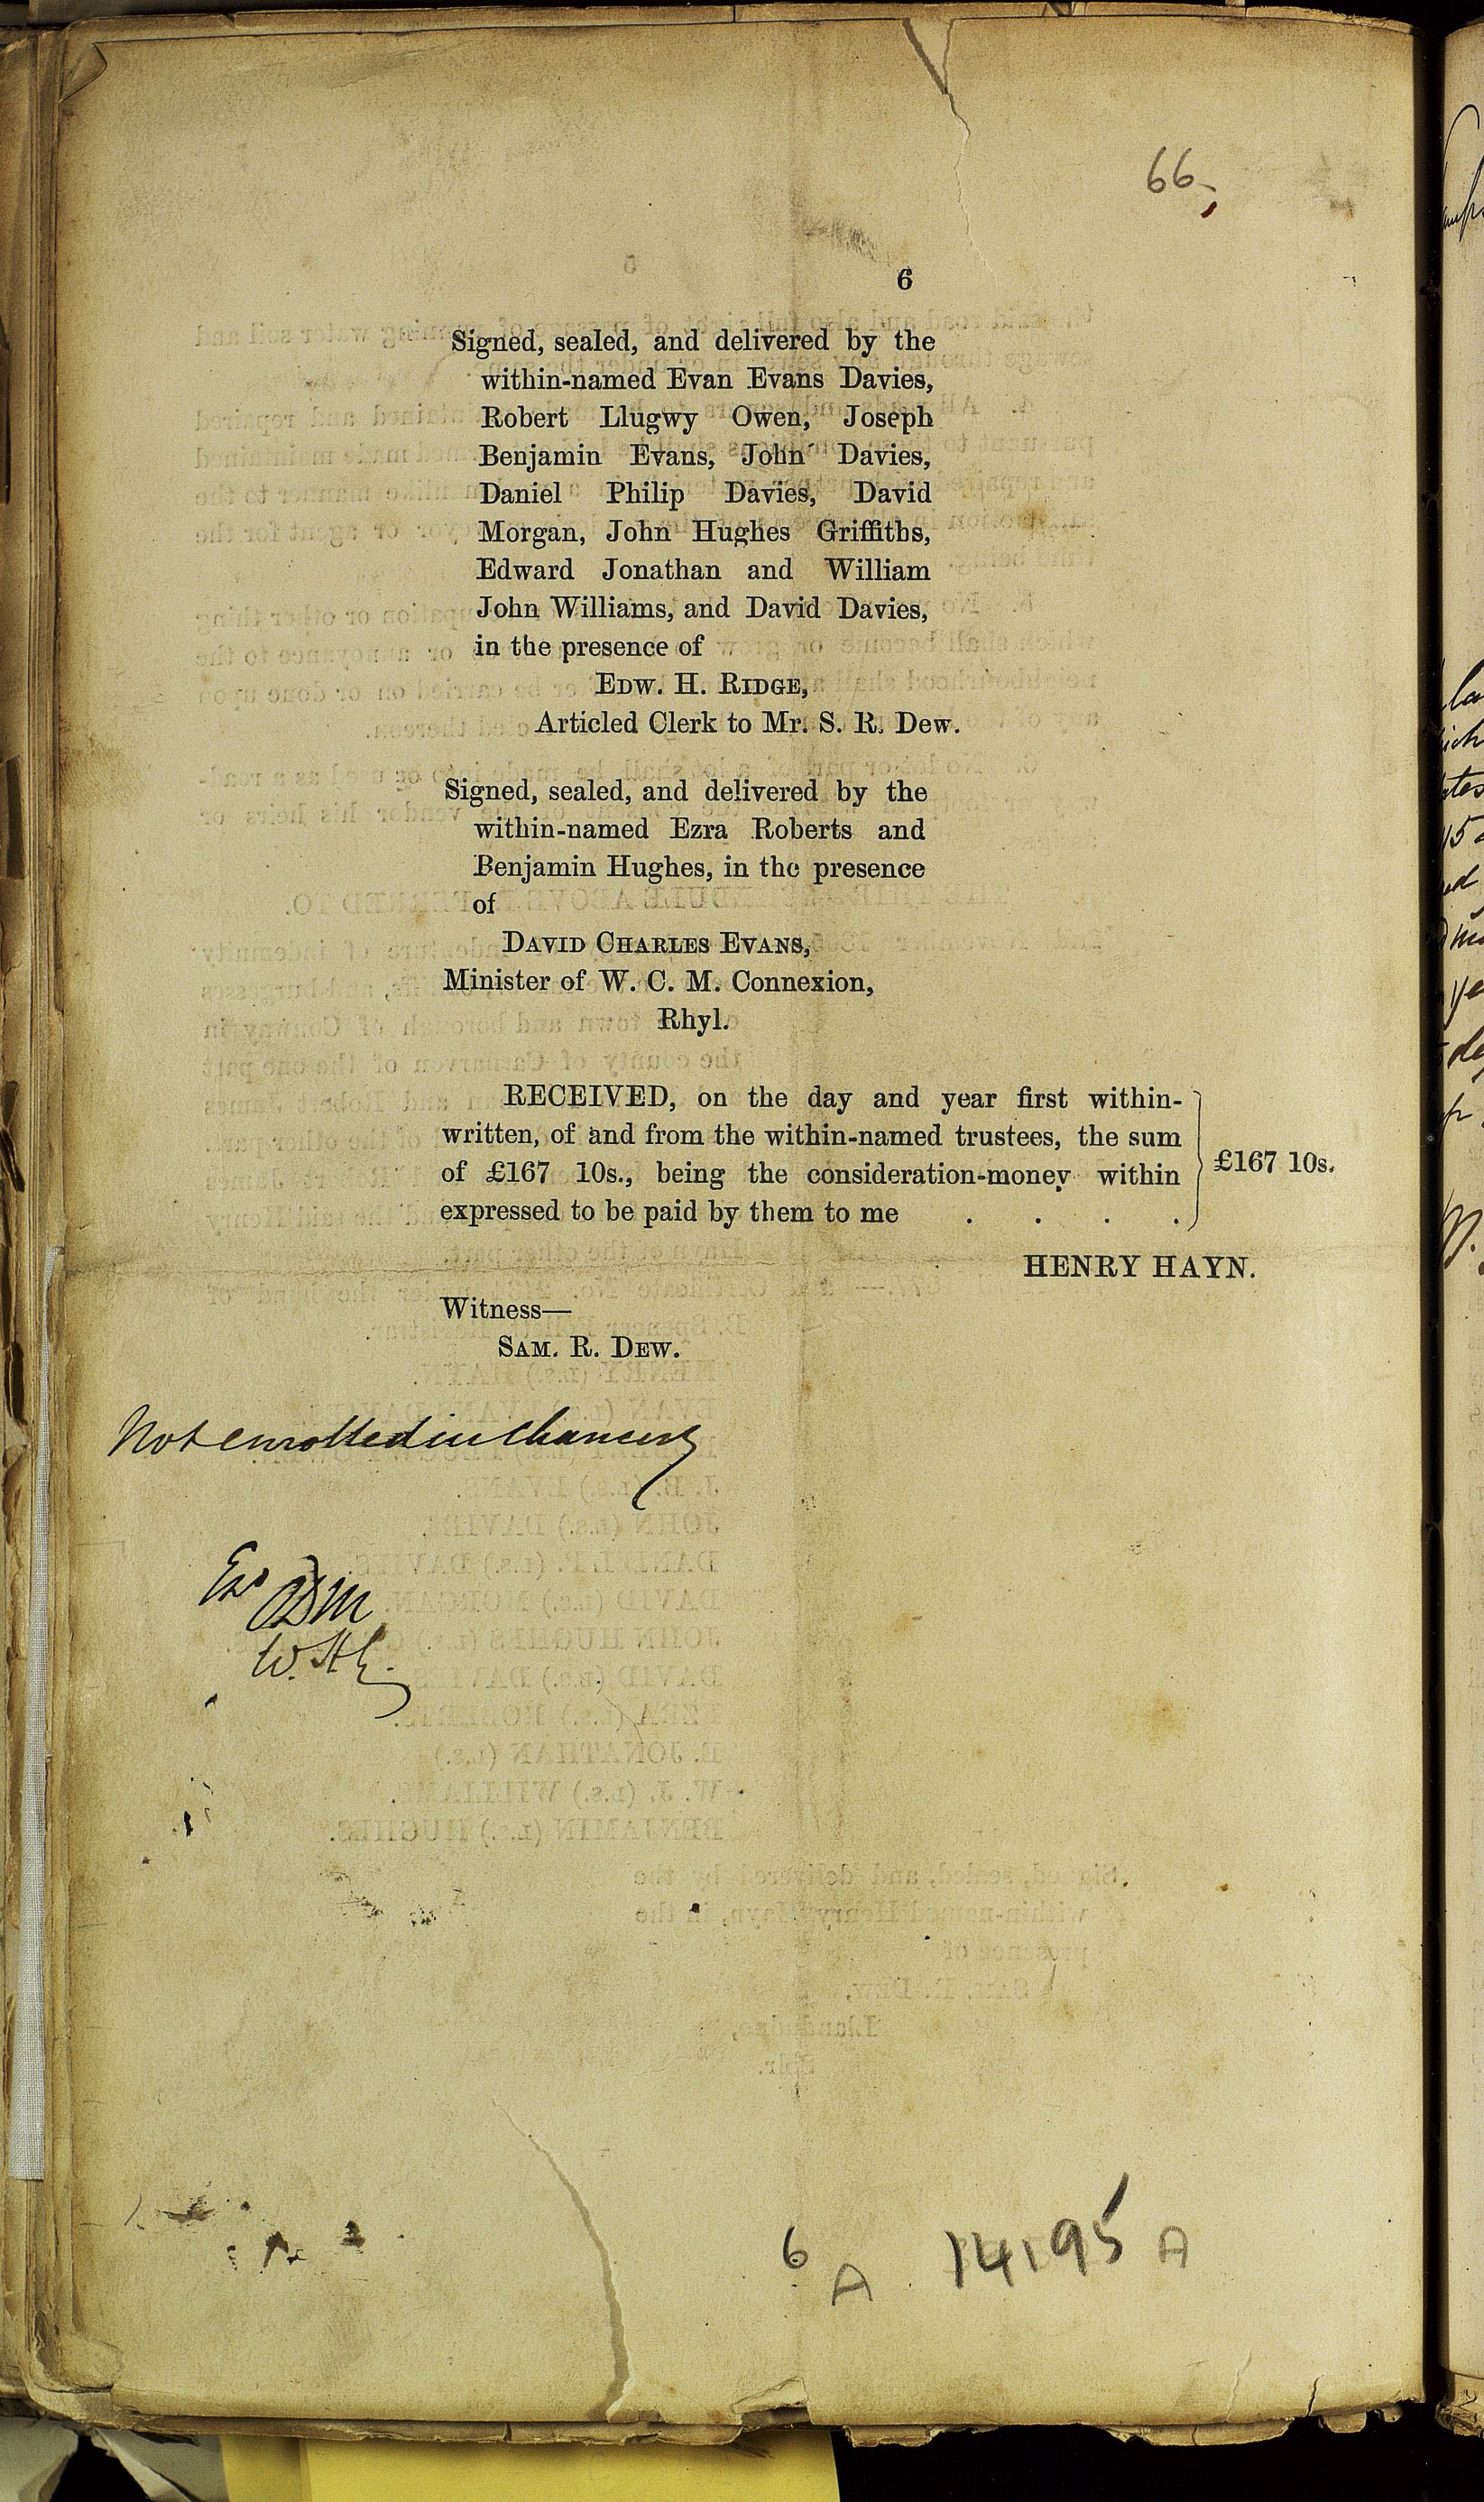 66
6
Signed, sealed, and delivered by the
within-named Evan Evans Davies,
Robert Llugwy Owen, Joseph
Benjamin Evans, John Davies,
Daniel Philip Davies, David
Morgan, John Hughes Griffiths,
Edward Jonathan and William
John Williams, and David Davies,
in the presence of
EDW. H. RIDGE,
Articled Clerk to Mr. S. R. Dew.
Signed, sealed, and delivered by the
within-named Ezra Roberts and
Benjamin Hughes, in the presence
of
DAVID CHARLES EVANS,
Minister of W. C. M. Connexion,
Rhyl.
RECEIVED, on the day and year first within-
written, of and from the within-named trustees, the sum
of £167 10s., being the consideration-money within
expressed to be paid by them to me . . . .
£167 10s.
HENRY HAYN.
Witness—
SAM. R. DEW.
Not enrolled in Chancery
Exd
W.H.G.
6 A 14195 A